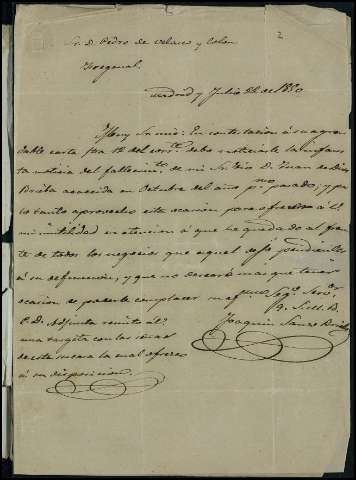 2
Sr. D. Pedro de Velasco y Colon
Madrid y Julio 22 de 1850
Muy Sr. mio: En contestacion á su agra
dable carta fha 12 del corr.te debo ratificarle la infaus
ta noticia del fallecim.to de mi Sr. tio D. Juan de Dios
acaecida en Octubre del año p.mo pasado, y por
lo tanto aprovecho esta ocasion para ofrecer á V.
mi inutilidad en atencion á que he quedado al fren
te de todos los negocios que aquel dejó pendientes
á su defuncion, y que no deseará mas que tener
ocasion de poderle complacer su af.mo Seg.o Serv.or
Q. S. M. B.
Joaquin Sanz
P. D. Adjunta remito á V.
una targeta con las señas
de esta su casa la cual ofrezco
á su disposicion.